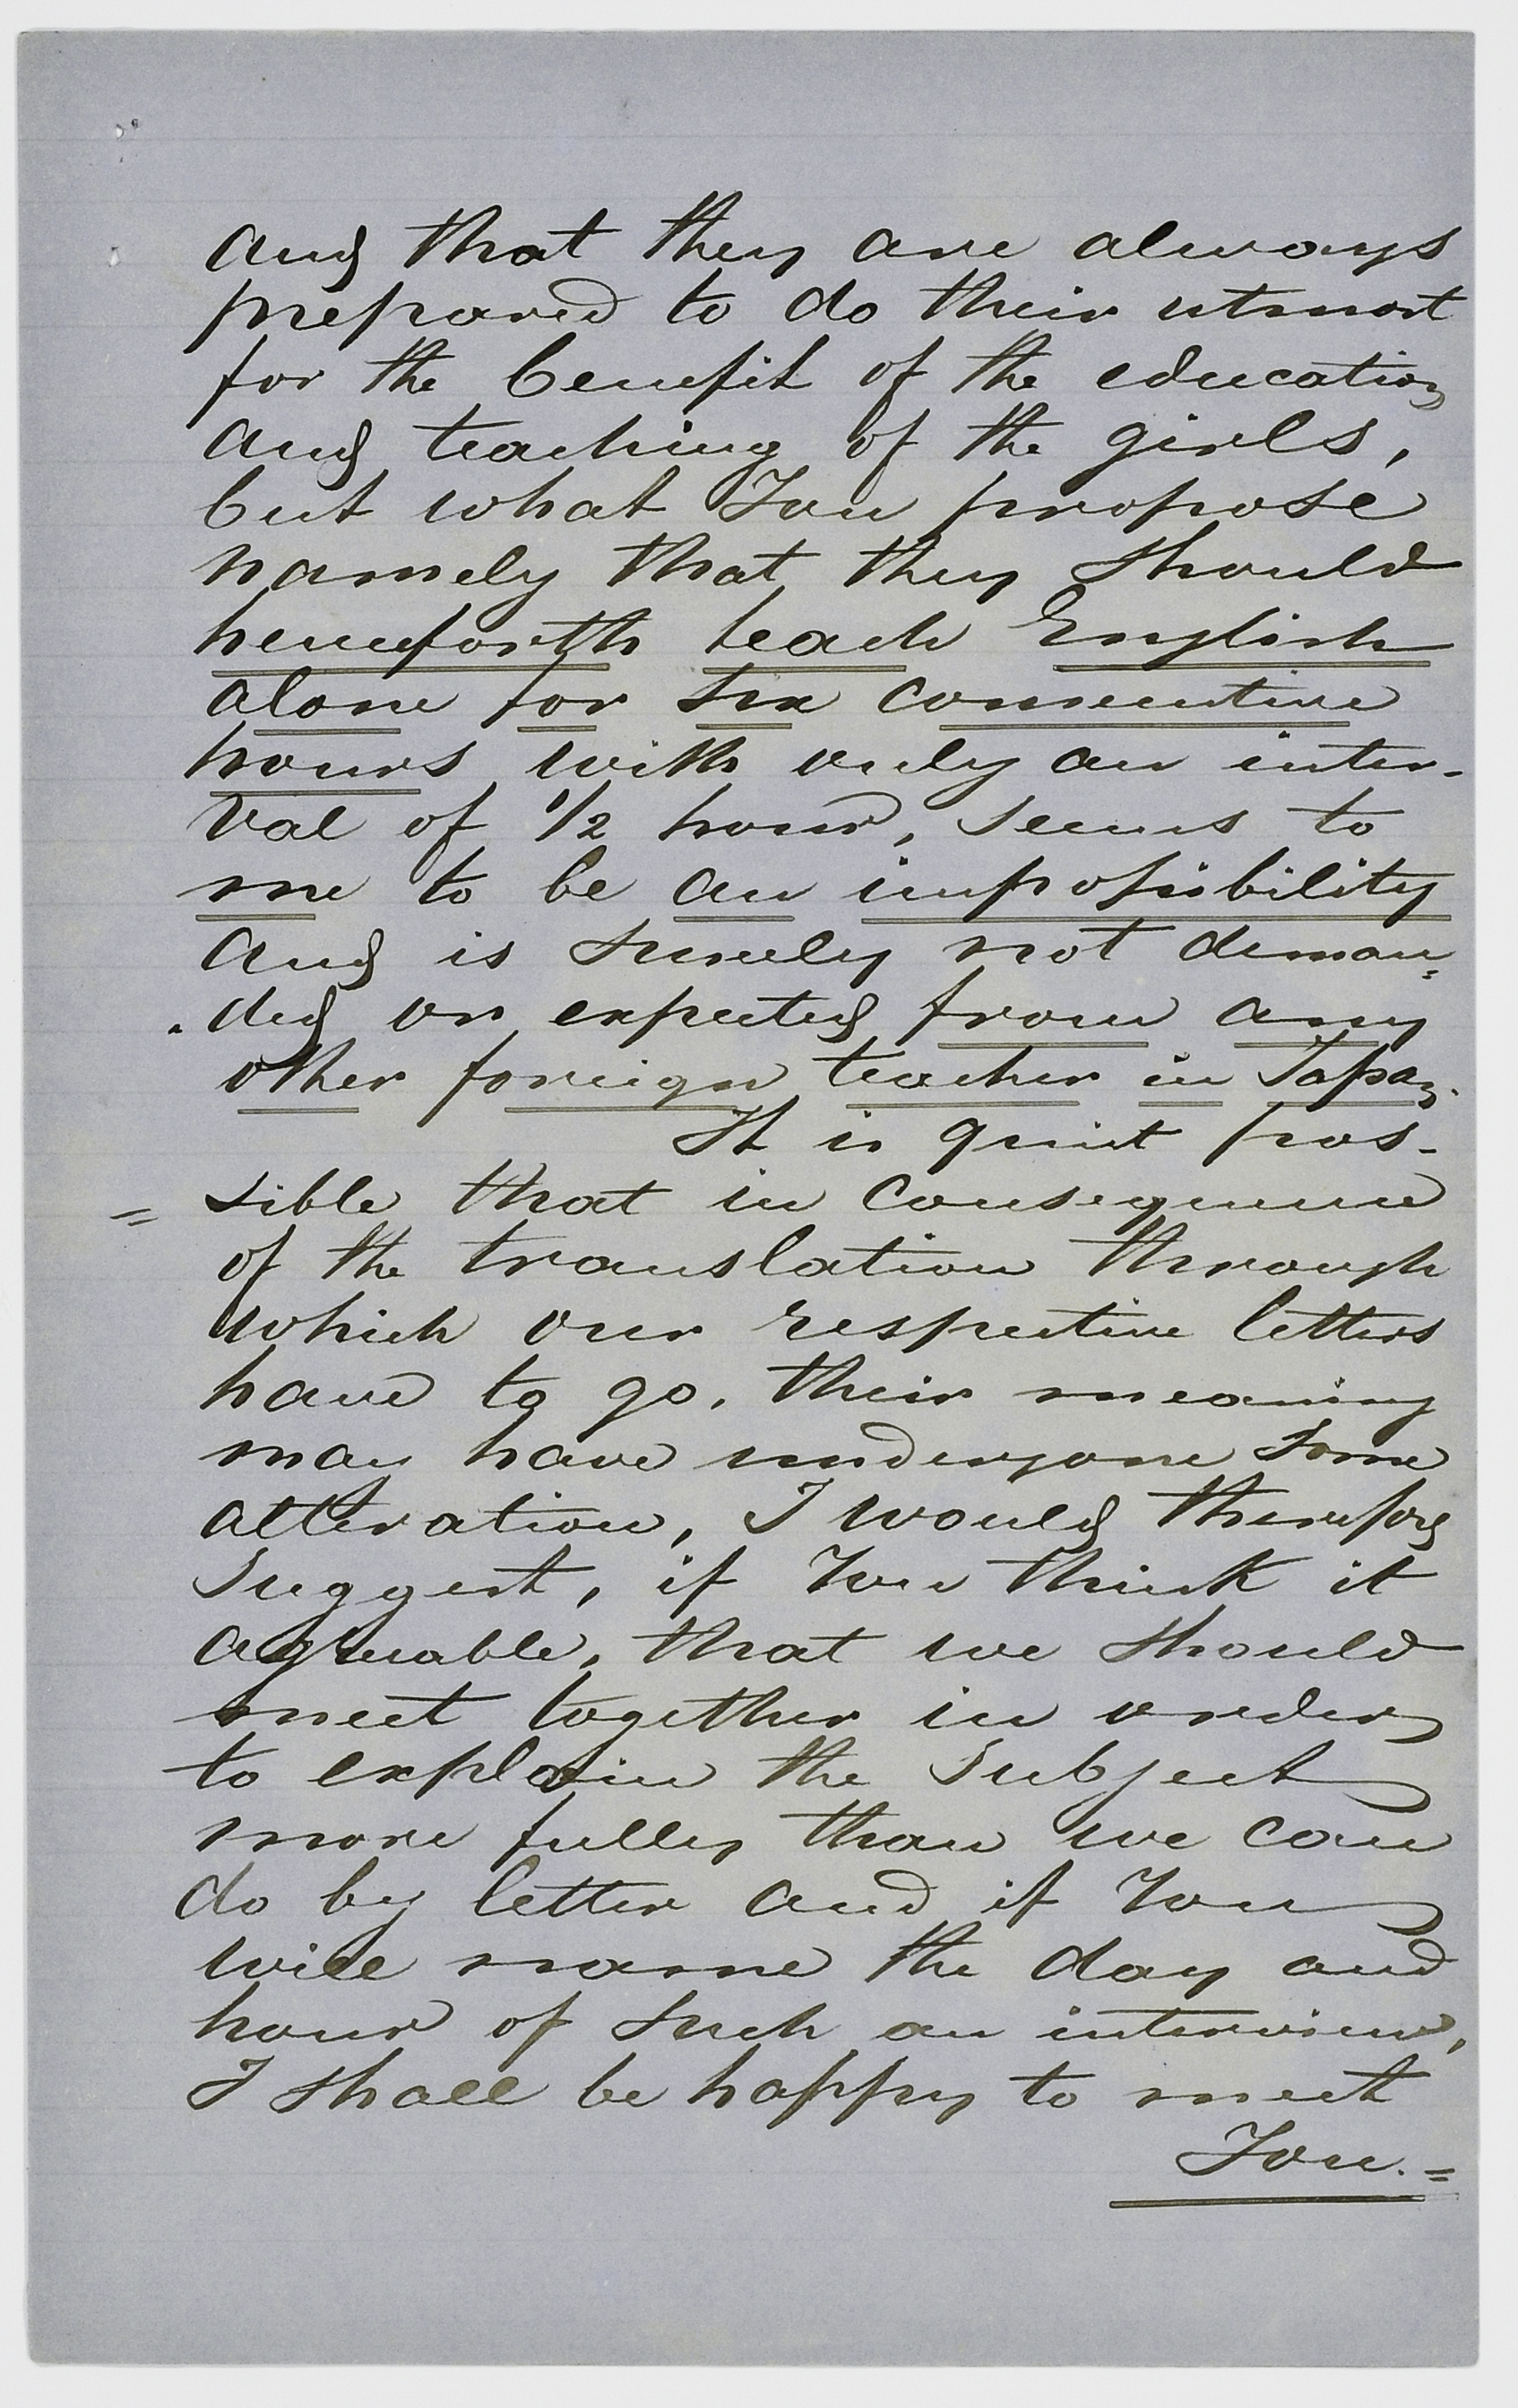 and that they are always
prepared to do their utmost
for the benefit of the education
and teaching of the girls,
but what You propose
namely that they should
henceforth teach English
alone for six consecutive
hours with only an inter-
val of 1/2 hour, seems to
me to be an impossibility
and is surely not deman=
"ded or expected from any
other foreign teacher in Japan.
It is quiet pos-
= sible that in consequence
of the translation through
which our respective letters
have to go, their meaning
may have undergone some
alteration, I would therefore
suggest, if You think it
agreeable, that we should
meet together in order
to explain the subject
more fully than we can
do by letter and if You
will name the day and
hour of such an interview,
I shall be happy to meet
You.=